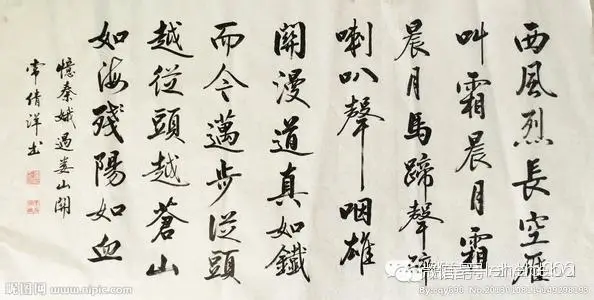 西風烈長空雁
叫霜晨月霜
晨月馬蹄聲碎
喇叭聲咽雄
關漫道真如鐵
而今邁步從頭
越從頭越蒼山
如海殘陽如血
憶秦娥過婁山關
常倩洋书
昵图网 www.nipic.com